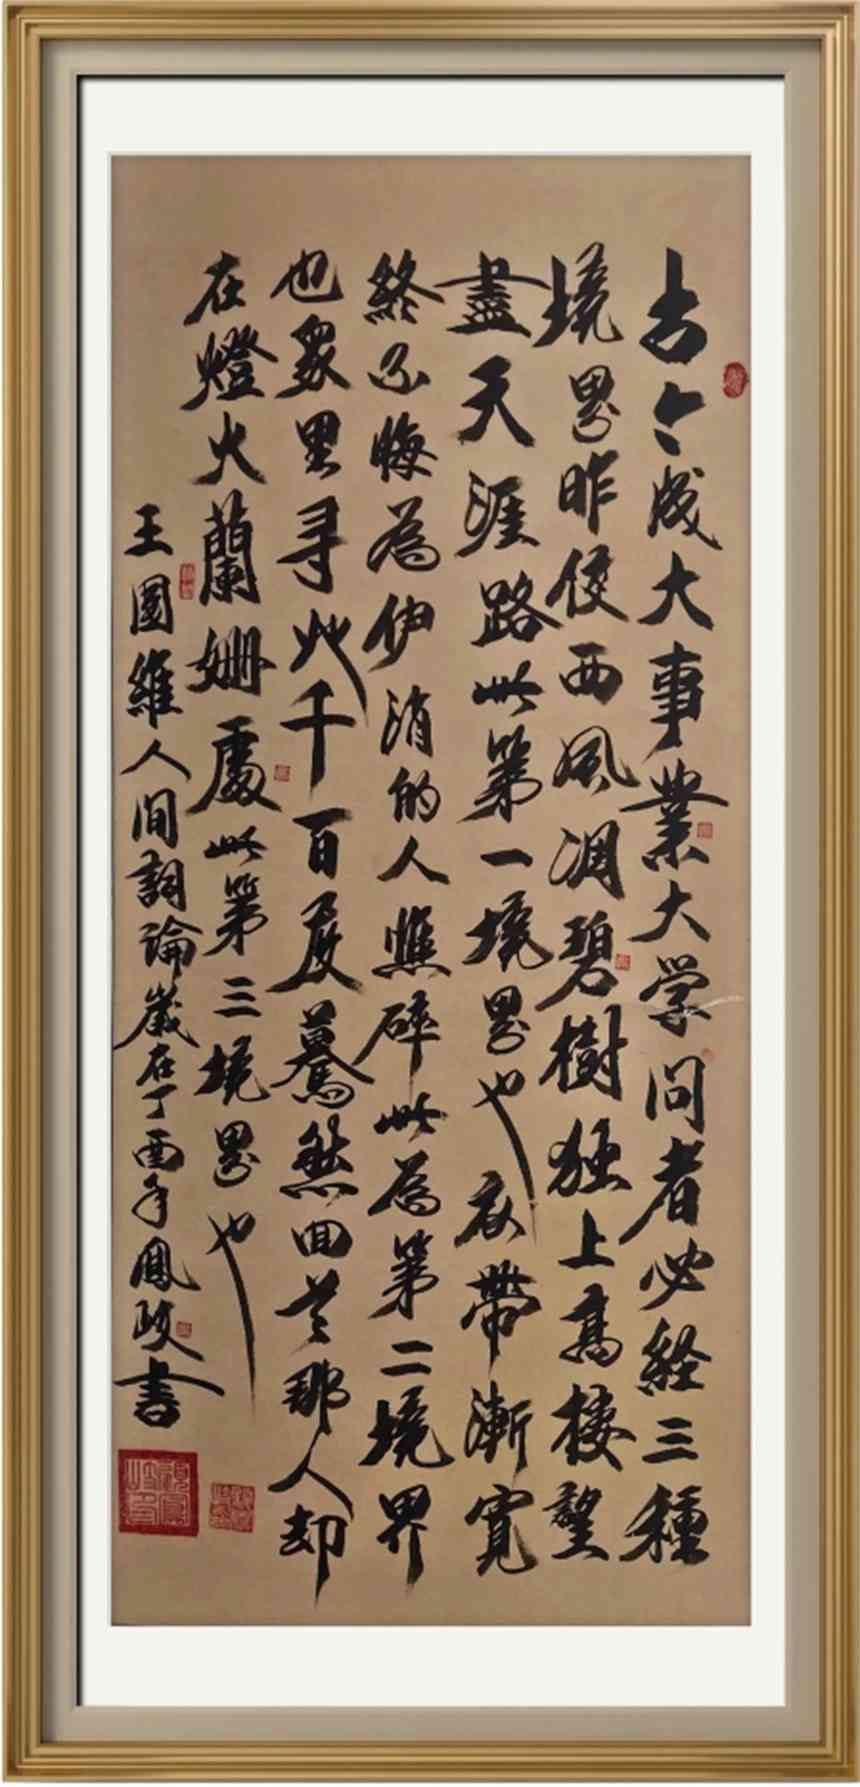 古今成大事業大学问者必经三種
境界昨夜西風凋碧樹独上高楼望
盡天涯路此第一境界也衣帶漸寬
終不悔為伊消的人憔碎此為第二境界
也眾里寻他千百度驀然回首那人却
在燈火蘭姍處此第三境界也
王國維人间詞論歲在丁酉年鳳岐書